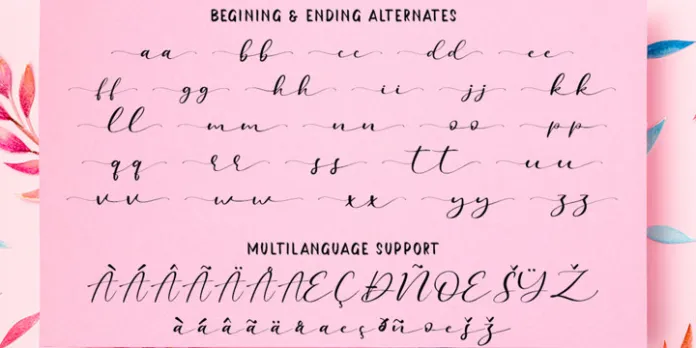 BEGINING & ENDING ALTERNATES
aa bb cc dd ee
ff gg hh ii jj kk
ll mm nn oo pp
qq rr ss tt uu
vv ww xx yy zz
MULTILANGUAGE SUPPORT
ÀÁÂÃÄÅÆÇÐÑŒŠŸŽ
àáâãäåæçðñœšž